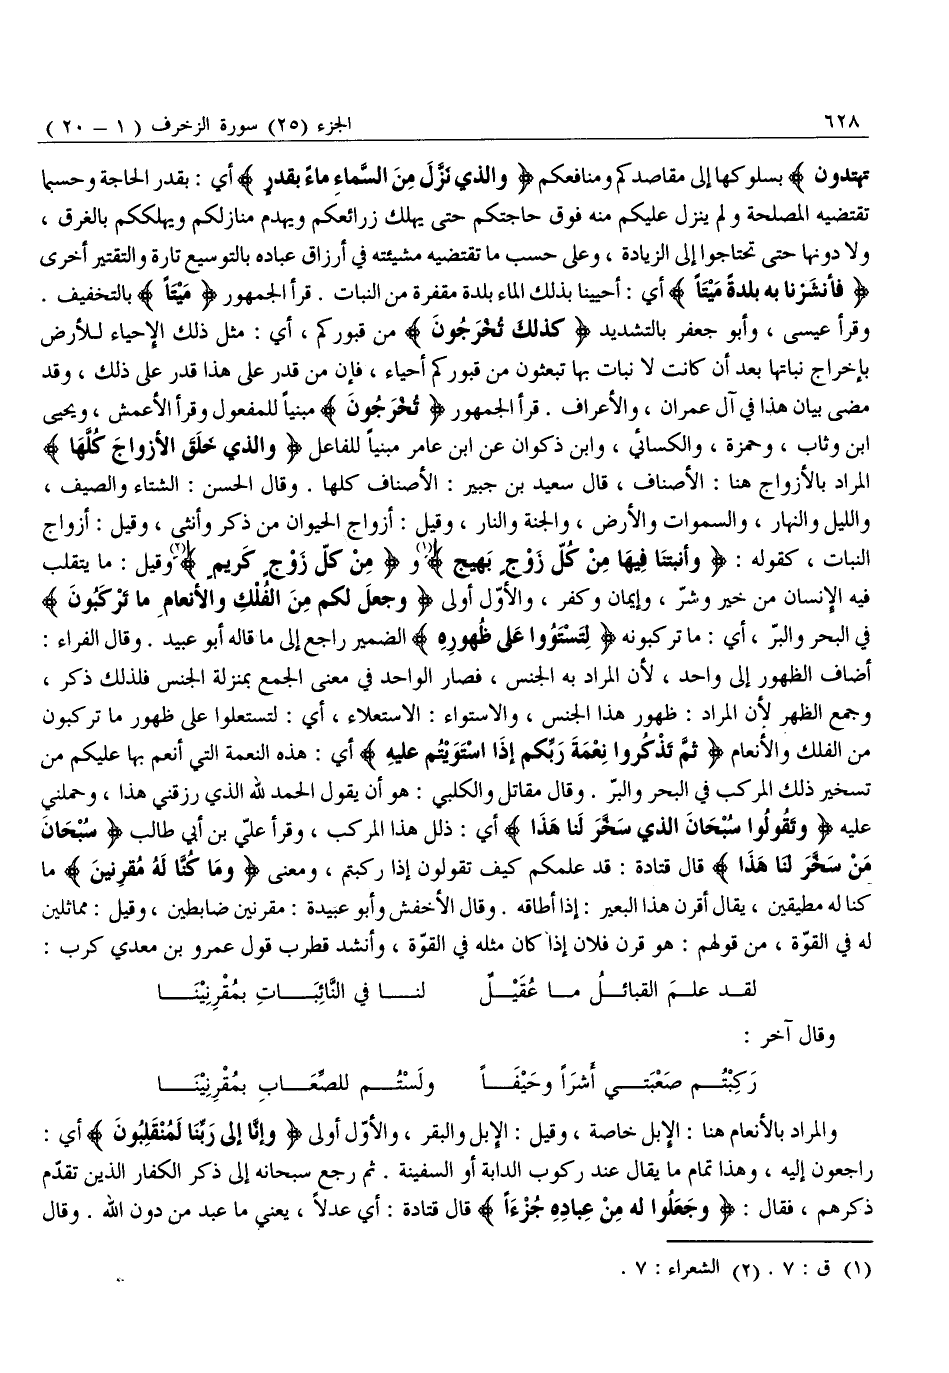 ٦٢٨ الجزء (٢٥) سورة الزخرف ( ١ - ٢٠ )
تهتدون ﴾ بسلوكها إلى مقاصدكم ومنافعكم ﴿ والذي نَزَّلَ مِنَ السَّماءِ ماءً بقدرٍ ﴾ أي : بقدر الحاجة وحسبما
تقتضيه المصلحة ولم ينزل عليكم منه فوق حاجتكم حتى يهلك زرائعكم ويهدم منازلكم ويهلككم بالغرق ،
ولا دونها حتى تحتاجوا إلى الزيادة ، وعلى حسب ما تقتضيه مشيئته في أرزاق عباده بالتوسيع تارة والتقتير أخرى
﴿ فأنشَرْنا به بلدةً مَيْتاً ﴾ أي : أحيينا بذلك الماء بلدة مقفرة من النبات . قرأ الجمهور ﴿ مَيْتاً ﴾ بالتخفيف .
وقرأ عيسى ، وأبو جعفر بالتشديد ﴿ كذلك تُخْرَجُونَ ﴾ من قبوركم ، أي : مثل ذلك الإحياء للأرض
بإخراج نباتها بعد أن كانت لا نبات بها تبعثون من قبوركم أحياء ، فإن من قدر على هذا قدر على ذلك ، وقد
مضى بيان هذا في آل عمران ، والأعراف . قرأ الجمهور ﴿ تُخْرَجُونَ ﴾ مبنياً للمفعول وقرأ الأعمش ، ويحيى
ابن وثاب ، وحمزة ، والكسائي ، وابن ذكوان عن ابن عامر مبنياً للفاعل ﴿ والذي خلَقَ الأزواجَ كُلَّها ﴾
المراد بالأزواج هنا : الأصناف ، قال سعيد بن جبير : الأصناف كلها . وقال الحسن : الشتاء والصيف ،
والليل والنهار ، والسموات والأرض ، والجنة والنار ، وقيل : أزواج الحيوان من ذكر وأنثى ، وقيل : أزواج
النبات ، كقوله : ﴿ وأنبتنَا فِيهَا مِنْ كُلِّ زَوْجٍ بَهيج ﴾(١) و ﴿ مِنْ كلِّ زَوْجٍ كَريمٍ ﴾(٢) وقيل : ما يتقلب
فيه الإنسان من خير وشرّ ، وإيمان وكفر ، والأوّل أولى ﴿ وجعلَ لكم مِنَ الفُلْكِ والأنعامِ ما تَرْكَبُونَ ﴾
في البحر والبرّ ، أي : ما تركبونه ﴿ لِتَسْتَوُوا عَلى ظُهورِهِ ﴾ الضمير راجع إلى ما قاله أبو عبيد . وقال الفراء :
أضاف الظهور إلى واحد ، لأن المراد به الجنس ، فصار الواحد في معنى الجمع بمنزلة الجنس فلذلك ذكر ،
وجمع الظهر لأن المراد : ظهور هذا الجنس ، والاستواء : الاستعلاء ، أي : لتستعلوا على ظهور ما تركبون
من الفلك والأنعام ﴿ ثمَّ تَذْكُروا نِعْمَةَ رَبِّكم إذَا اسْتَوَيْتُم عليهِ ﴾ أي : هذه النعمة التي أنعم بها عليكم من
تسخير ذلك المركب في البحر والبرّ . وقال مقاتل والكلبي : هو أن يقول الحمد لله الذي رزقني هذا ، وحملني
عليه ﴿ وتَقُولُوا سُبْحَانَ الذي سَخَّرَ لَنا هَذَا ﴾ أي : ذلل هذا المركب ، وقرأ عليّ بن أبي طالب ﴿ سُبْحَانَ
مَنْ سَخَّرَ لَنَا هَذَا ﴾ قال قتادة : قد علمكم كيف تقولون إذا ركبتم ، ومعنى ﴿ ومَا كُنَّا لَهُ مُقرِنِينَ ﴾ ما
كنا له مطيقين ، يقال أقرن هذا البعير : إذا أطاقه . وقال الأخفش وأبو عبيدة : مقرنين ضابطين ، وقيل : مماثلين
له في القوّة ، من قولهم : هو قرن فلان إذا كان مثله في القوّة ، وأنشد قطرب قول عمرو بن معدي كرب :
لقد علمَ القبائلُ ما عُقَيْلٌ لنا في النَّائِبَاتِ بمُقْرِنِيْنَا
وقال آخر :
رَكِبْتُم صَعْبَتي أَشَرَاً وحَيْفَاً ولَسْتُم للصِّعَابِ بمُقْرِنِيْنَا
والمراد بالأنعام هنا : الإبل خاصة ، وقيل : الإبل والبقر ، والأوّل أولى ﴿ وإنَّا إلى رَبِّنَا لَمُنْقَلِبُونَ ﴾ أي :
راجعون إليه ، وهذا تمام ما يقال عند ركوب الدابة أو السفينة . ثم رجع سبحانه إلى ذكر الكفار الذين تقدّم
ذكرهم ، فقال : ﴿ وجَعَلُوا له مِنْ عِبادِهِ جُزْءَاً ﴾ قال قتادة : أي عدلاً ، يعني ما عبد من دون الله . وقال
(١) ق : ٧ . (٢) الشعراء : ٧ .